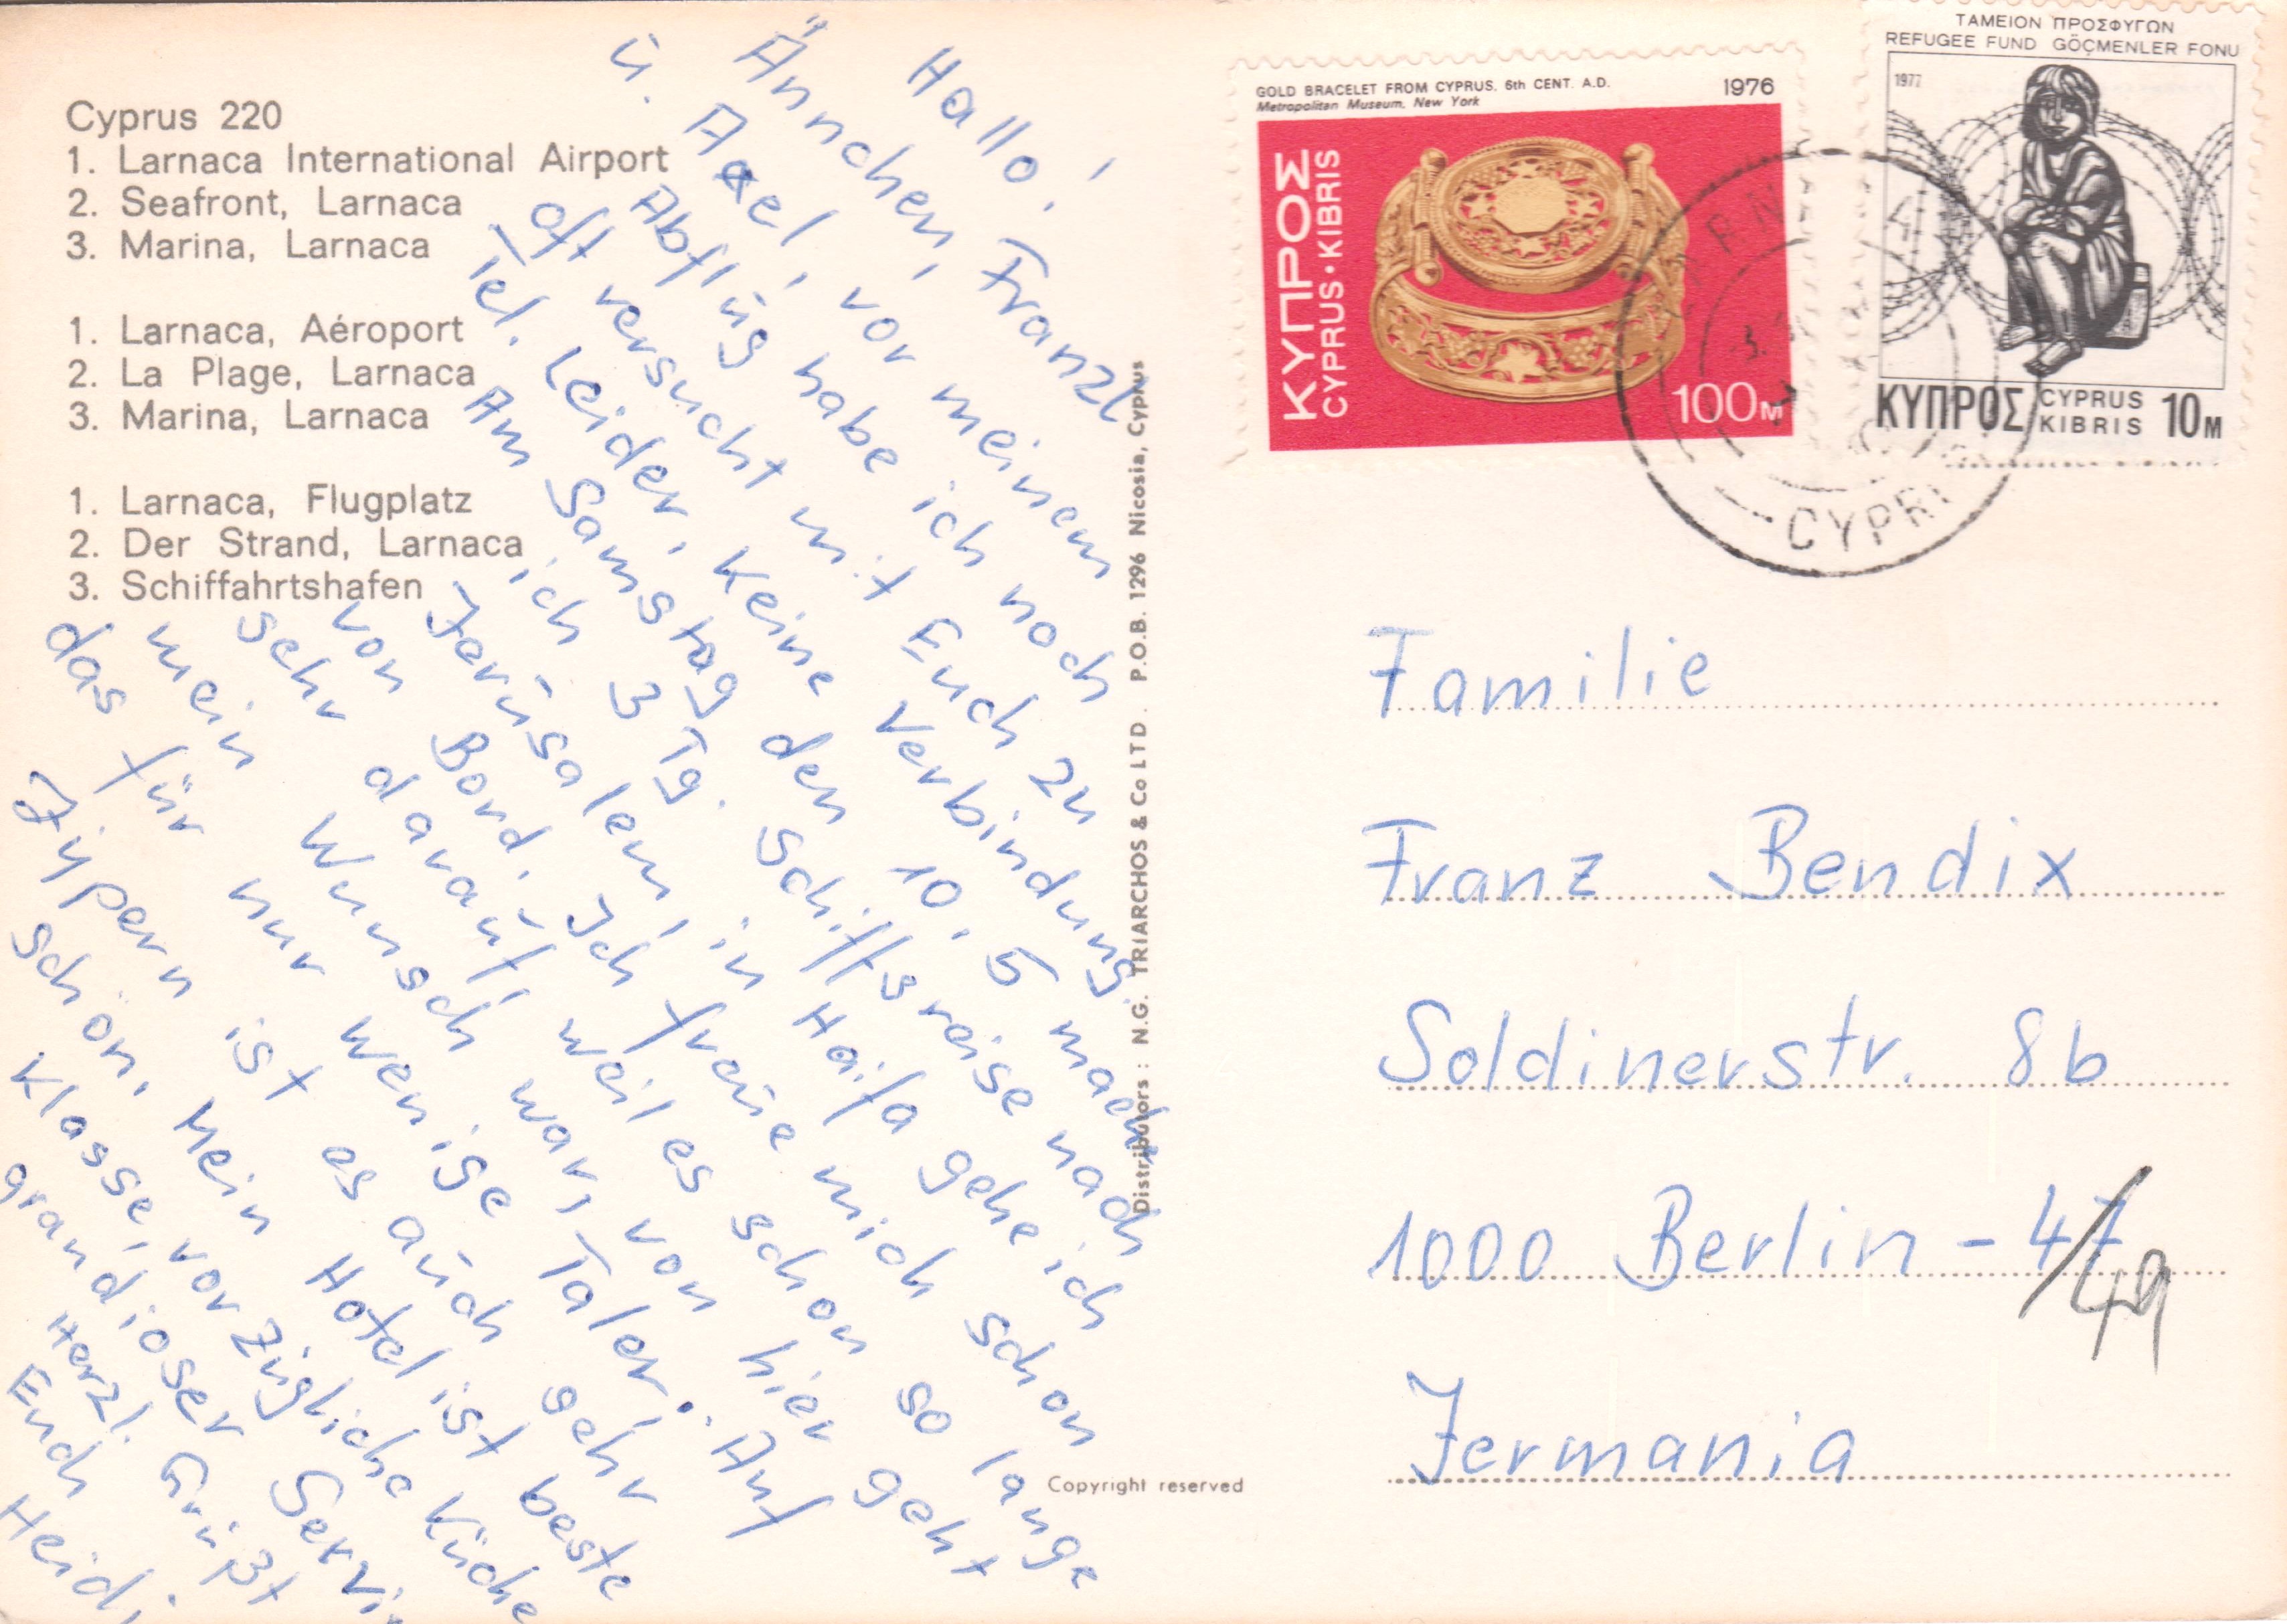 Cyprus 220
1. Larnaca International Airport
2. Seafront, Larnaca
3. Marina, Larnaca
1. Larnaca, Aéroport
2. La Plage, Larnaca
3. Marina, Larnaca
1. Larnaca, Flugplatz
2. Der Strand, Larnaca
3. Schiffahrtshafen
Hallo!
Ännchen, Franzl
ü. Axel, vor meinem
Abflüg habe ich noch
oft versucht mit Euch zu
Tel. Leider, keine Verbindung.
Am Samstag den 10. 5 mache
ich 3 Tg. Schiffsreise nach
Jerüsalem, in Haifa gehe ich
von Bord. Ich freüe mich schon
sehr daraüf, weil es schon so lange
mein Wunsch war, von hier geht
das für nur wenige Taler. Auf
Zypern ist es aüch sehr
schön, Mein Hotel ist beste
Klasse, vorzügliche Küche
grandioser Servi
Herzl. Grüßt
Euch
Heidi
Distributors : N.G. TRIARCHOS & Co LTD. P.O.B. 1296 Nicosia, Cyprus
Copyright reserved
GOLD BRACELET FROM CYPRUS. 6th CENT. A.D. 1976
Metropolitan Museum, New York
ΚΥΠΡΟΣ
CYPRUS·KIBRIS
100M
ΤΑΜΕΙΟΝ ΠΡΟΣΦΥΓΩΝ
REFUGEE FUND GÖÇMENLER FONU
1977
ΚΥΠΡΟΣ CYPRUS KIBRIS 10M
Familie
Franz Bendix
Soldinerstr. 8b
1000 Berlin - 47
/49
Jermania